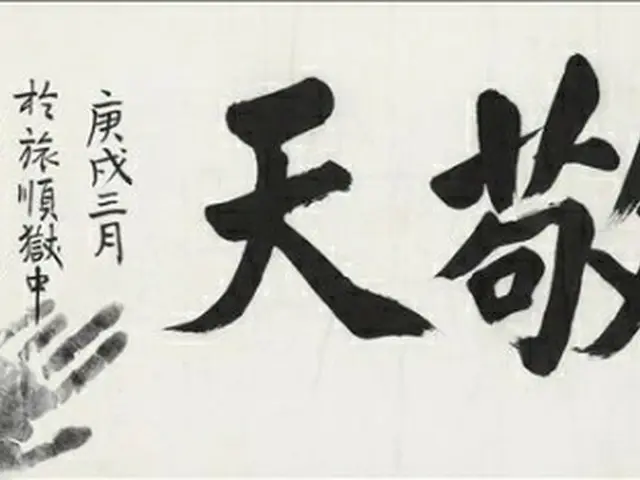 敬天
庚戌三月
於旅順獄中